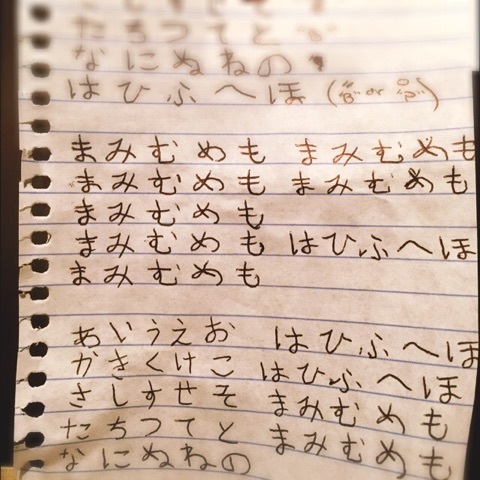 たちつてと
なにぬねの
はひふへほ ( " or ° )
まみむめも まみむめも
まみむめも まみむめも
まみむめも
まみむめも はひふへほ
まみむめも
あいうえお はひふへほ
かきくけこ はひふへほ
さしすせそ まみむめも
たちつてと まみむめも
なにぬねの